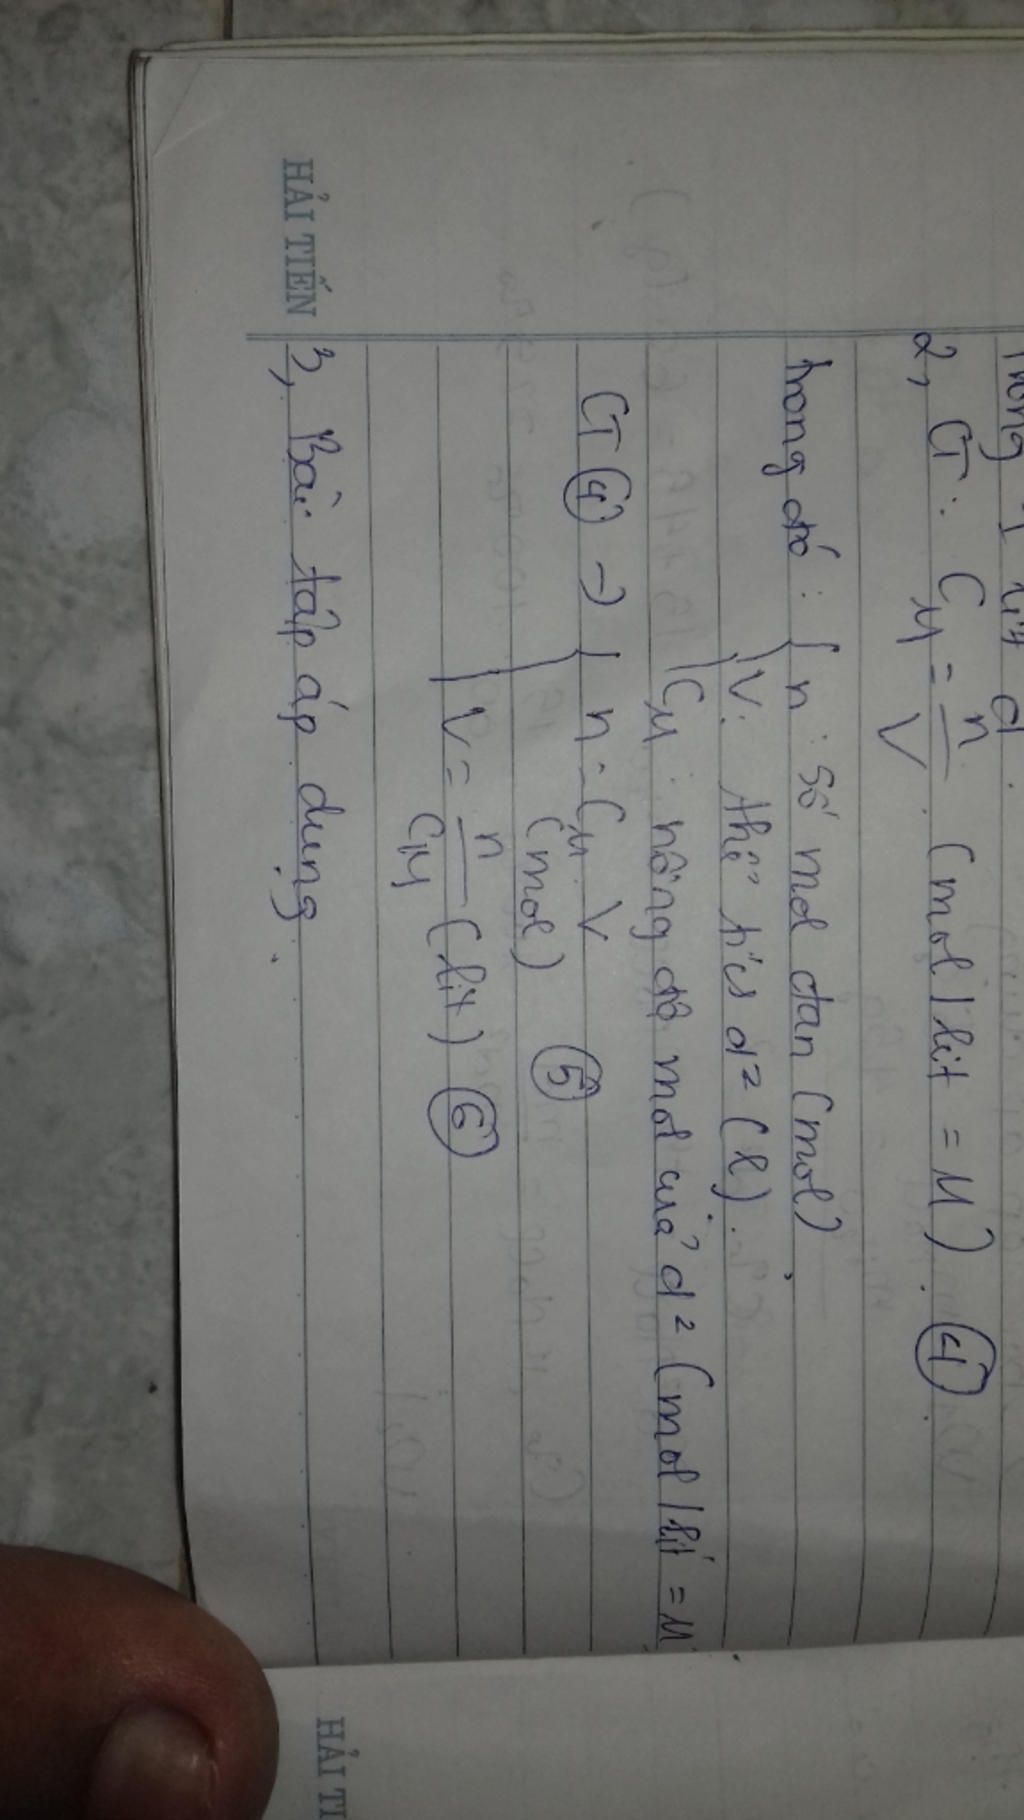 trong 1 lít d
2, CT: C_M = n/V (mol/lit = M). ④.
trong đó: { n: số mol ctan (mol)
V: thể tích d² (l).
C_M: nồng độ mol của d² (mol/lít = M
CT ④ → { n = C_M. V
(mol) ⑤
V = n/C_M (lit) ⑥
3, Bài tập áp dụng.
HẢI TIẾN
HẢI TI